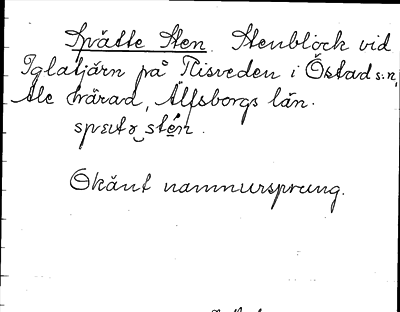 Spätte Sten. Stenblock vid
Iglatjärn på Risveden i Östad s:n,
Ale härad, Älfsborgs län.
Okänt namnursprung.